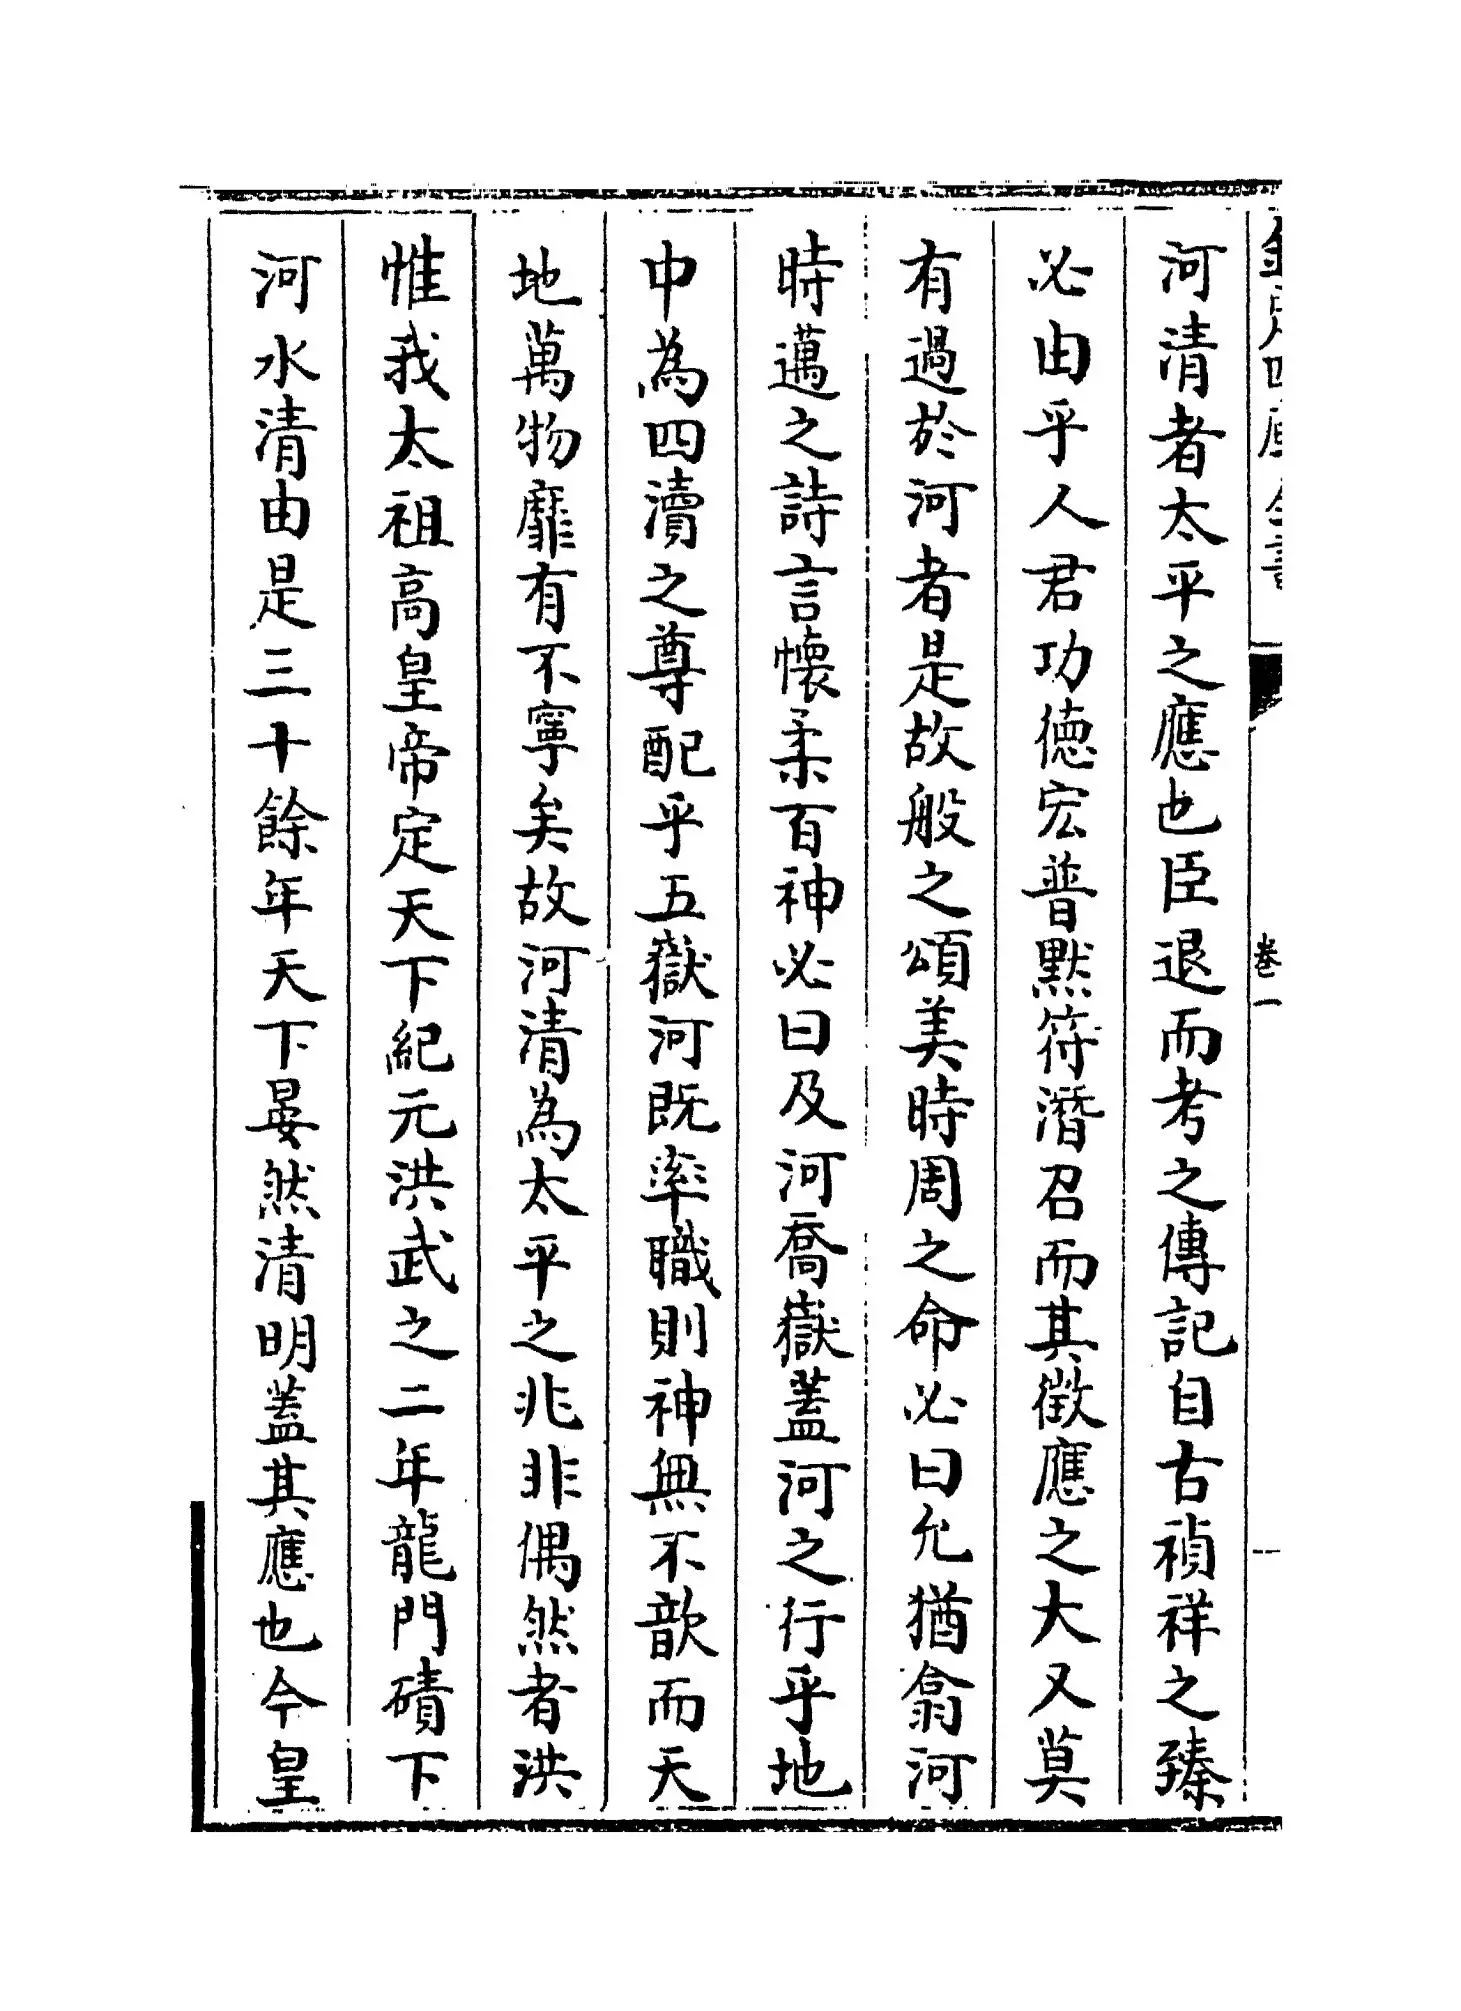 欽定四庫全書
卷一
河清者太平之應也臣退而考之傳記自古禎祥之臻
必由乎人君功德宏普默符潛召而其徵應之大又莫
有過於河者是故般之頌美時周之命必曰允猶翕河
時邁之詩言懷柔百神必曰及河喬嶽蓋河之行乎地
中為四瀆之尊配乎五嶽河既率職則神無不歆而天
地萬物靡有不寧矣故河清為太平之兆非偶然者洪
惟我太祖高皇帝定天下紀元洪武之二年龍門磧下
河水清由是三十餘年天下晏然清明蓋其應也今皇